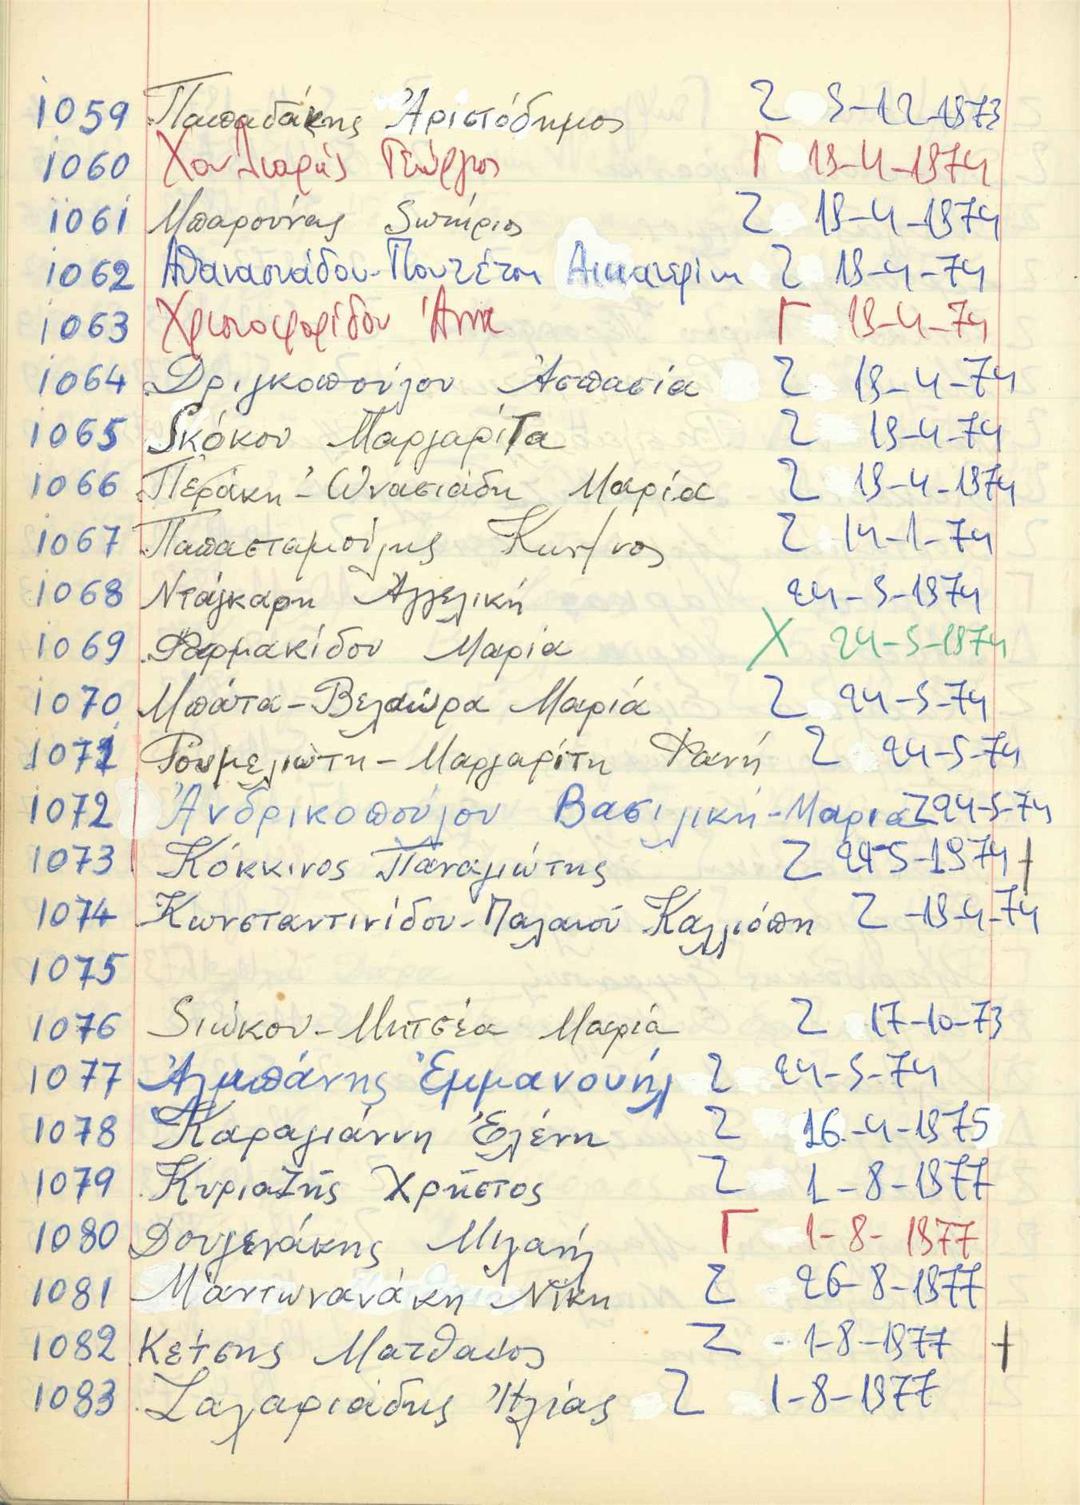 1059 Παπαδάκης Ἀριστόδημος Ζ 3-12-1973
1060 Χουλιαρᾶς Γεώργιος Γ 19-4-1974
1061 Μπαρούνας Σωτήριος Ζ 19-4-1974
1062 Ἀθανασιάδου-Πουτέτση Αικατερίνη Ζ 19-4-74
1063 Χριστοφορίδου Ἄννα Γ 19-4-74
1064 Δριλκοπούλου Ἀσπασία Ζ 19-4-74
1065 Σκόκου Μαργαρίτα Ζ 19-4-74
1066 Περάκη-Ἀνασιάδη Μαρία Ζ 19-4-1974
1067 Παπασταμούλης Κων/νος Ζ 14-1-74
1068 Ντάγκαρη Ἀγγελική 24-5-1974
1069 Φαρμακίδου Μαρία Χ 24-5-1974
1070 Μπάτα-Βελαώρα Μαρία Ζ 24-5-74
1071 Ρουμελιώτη-Μαργαρίτη Φανή Ζ 24-5-74
1072 Ἀνδρικοπούλου Βασιλική-Μαρία Ζ 24-5-74
1073 Κόκκινος Παναγιώτης Ζ 24-5-1974 †
1074 Κωνσταντινίδου-Παλαιού Καλλιόπη Ζ -19-4-74
1075
1076 Σιώκου-Μητσέα Μαρία Ζ 17-10-73
1077 Ἀλμπάνης Ἐμμανουήλ Ζ 24-5-74
1078 Καραγιάννη Ἑλένη Ζ 16-4-1975
1079 Κυριαζῆς Χρῆστος Ζ 1-8-1977
1080 Δουλγεράκης Μιχαήλ Γ 1-8-1977
1081 Μαντωνανάκη Νίκη Ζ 26-8-1977
1082 Κέτσης Ματθαῖος Ζ -1-8-1977 †
1083 Σαλαφιάδης Ἠλίας Ζ 1-8-1977